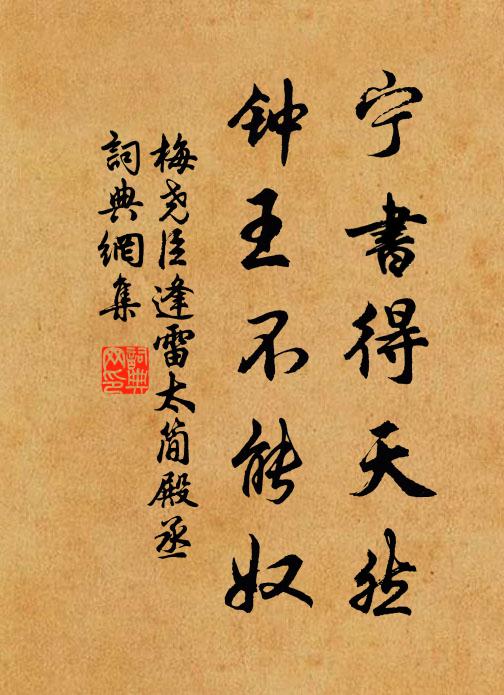 宁書得天然
钟王不能奴
梅尧臣逢雷太简殿丞
詞典網集
詞典
网印